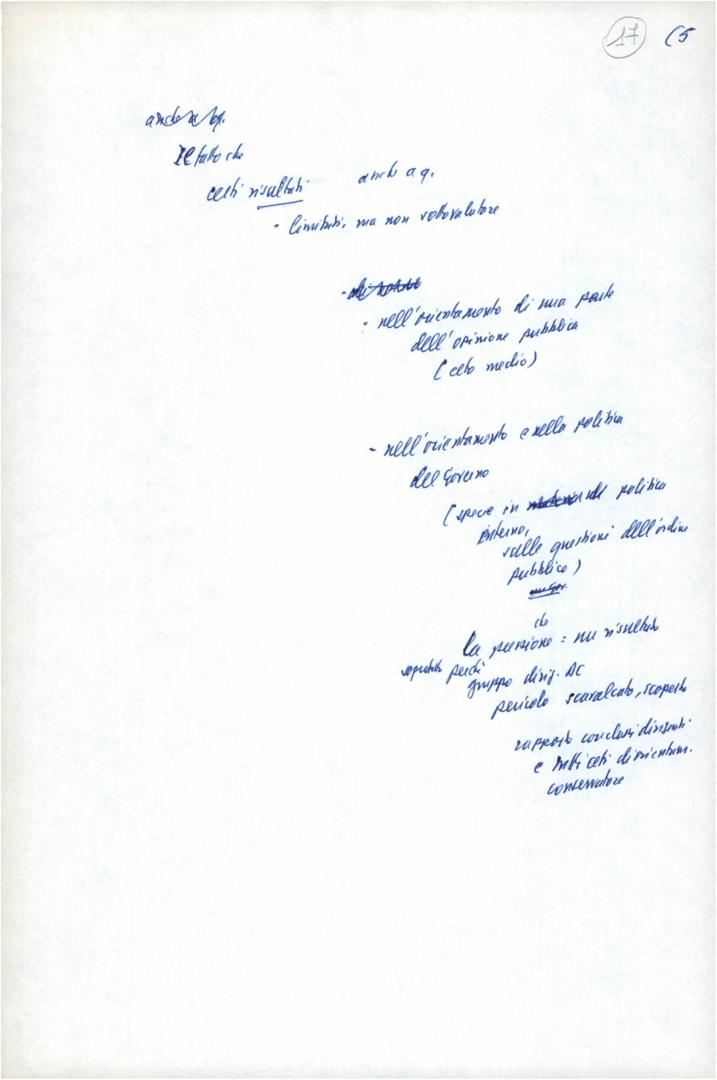 17 (5
Il fatto che
certi risultati anche a q.
- limitati, ma non sottovalutare
- nell'orientamento di una parte
dell'opinione pubblica
(ceto medio)
- nell'orientamento e nella politica
del Governo
(specie in politica
interna,
sulle questioni dell'ordine
pubblico)
che
la pressione = un risultato
soprattutto perché
gruppo dirig. DC
pericolo scavalcato, scoperto
rapporto con classi dirigenti
e tutti ceti di orientam.
conservatore